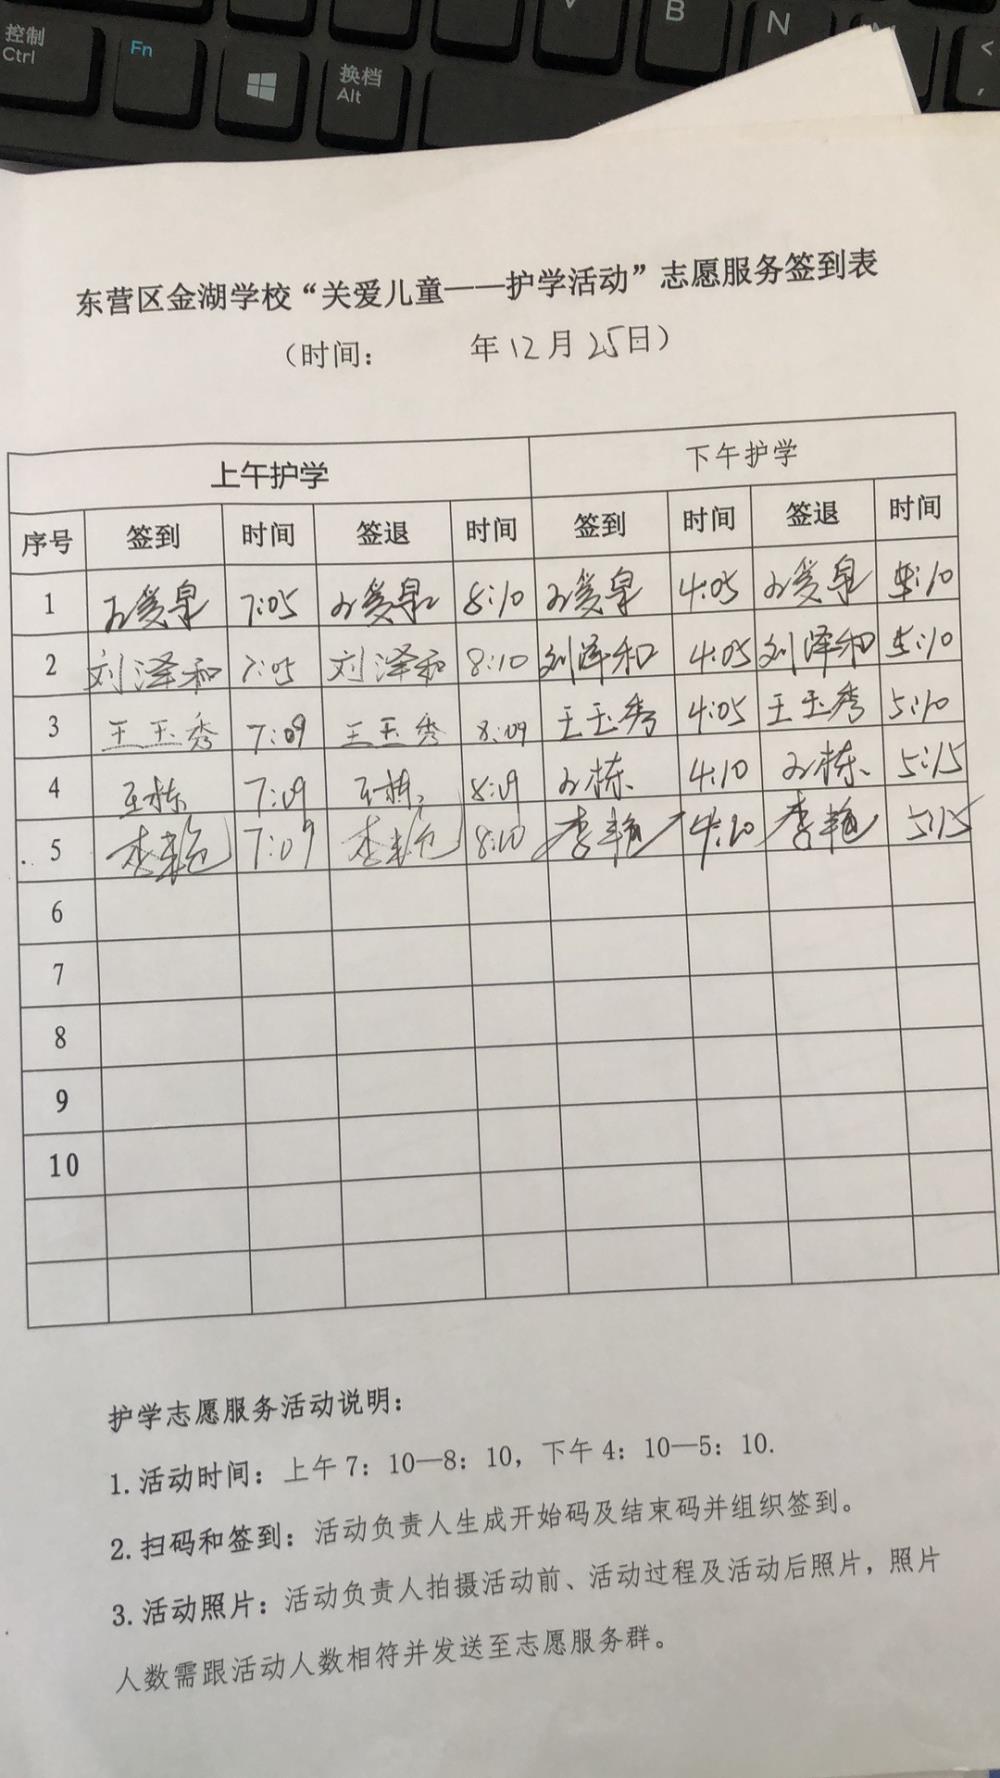 控制
Ctrl
Fn
换档
Alt
V
B
N
M
<
,
东营区金湖学校“关爱儿童——护学活动”志愿服务签到表
（时间： 年12月25日）
上午护学 下午护学
序号 签到 时间 签退 时间 签到 时间 签退 时间
1 7:05 8:10 4:05 5:10
2 刘泽和 7:05 刘泽和 8:10 刘泽和 4:05 刘泽和 5:10
3 王玉秀 7:09 王玉秀 8:09 王玉秀 4:05 王玉秀 5:10
4 7:09 8:09 4:10 5:15
5 李艳 7:09 李艳 8:10 李艳 4:10 李艳 5:15
6
7
8
9
10
护学志愿服务活动说明：
1.活动时间：上午7：10—8：10，下午4：10—5：10.
2.扫码和签到：活动负责人生成开始码及结束码并组织签到。
3.活动照片：活动负责人拍摄活动前、活动过程及活动后照片，照片
人数需跟活动人数相符并发送至志愿服务群。